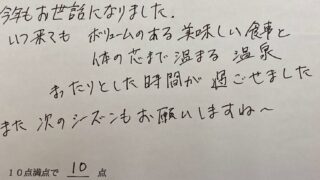 今年もお世話になりました.
いつ来ても ボリュームのある美味しい食事と
体の芯まで温まる 温泉
まったりとした時間が 過ごせました
また 次のシーズンもお願いしますね〜
10点満点で 10 点